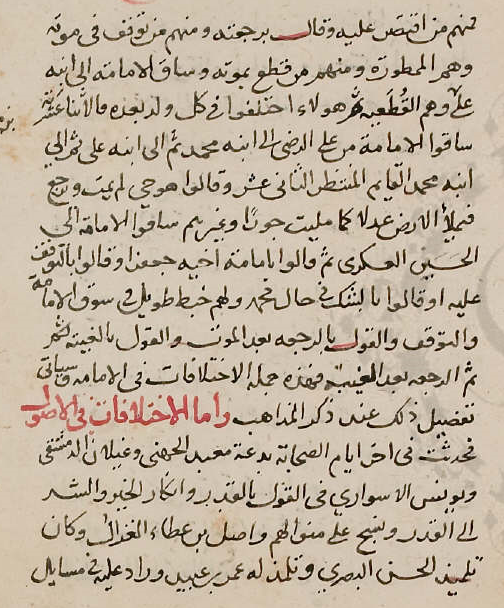 منهم من اقتصر عليه وقال برجعته ومنهم من توقف في موته
وهم الممطورة ومنهم من قطع بموته وساق الامامة الى ابنه
علي وهم القطعية ثم هولاء اختلفوا في كل ولد بعده فالاثنا عشرية
ساقوا الامامة من على الرضى الى ابنه محمد ثم الى ابنه على ثم الى
ابنه محمد القايم المنتظر الثانى عشر وقالوا هو حي لم يمت ويرجع
فيملأ الارض عدلا كما مليت جورًا وغيرهم ساقوا الامامة الى
الحسن العسكرى ثم قالوا بامامة اخيه جعفر وقالوا بالتوقف
عليه او قالوا بالشك في حال محمد ولهم خبط طويل في سوق الامامة
والتوقف والقول بالرجعه بعد الموت والقول بالغيبة ثم
ثم الرجعه بعد الغيبة فهذه جملة الاختلافات في الامامه وسياتى
تفصيل ذلك عند ذكر المذاهب واما الاختلافات في الاصول
فحدثت في اخر ايام الصحابة بدعة معبد الجهنى وغيلان الدمشقى
ويونس الاسواري في القول بالقدر وانكار الخير والشر
الى القدر ونسج على منوالهم واصل بن عطاء الغزال وكان
تلميذ الحسن البصري وتلمذ له عمرو بن عبيد وزاد عليه في مسايل